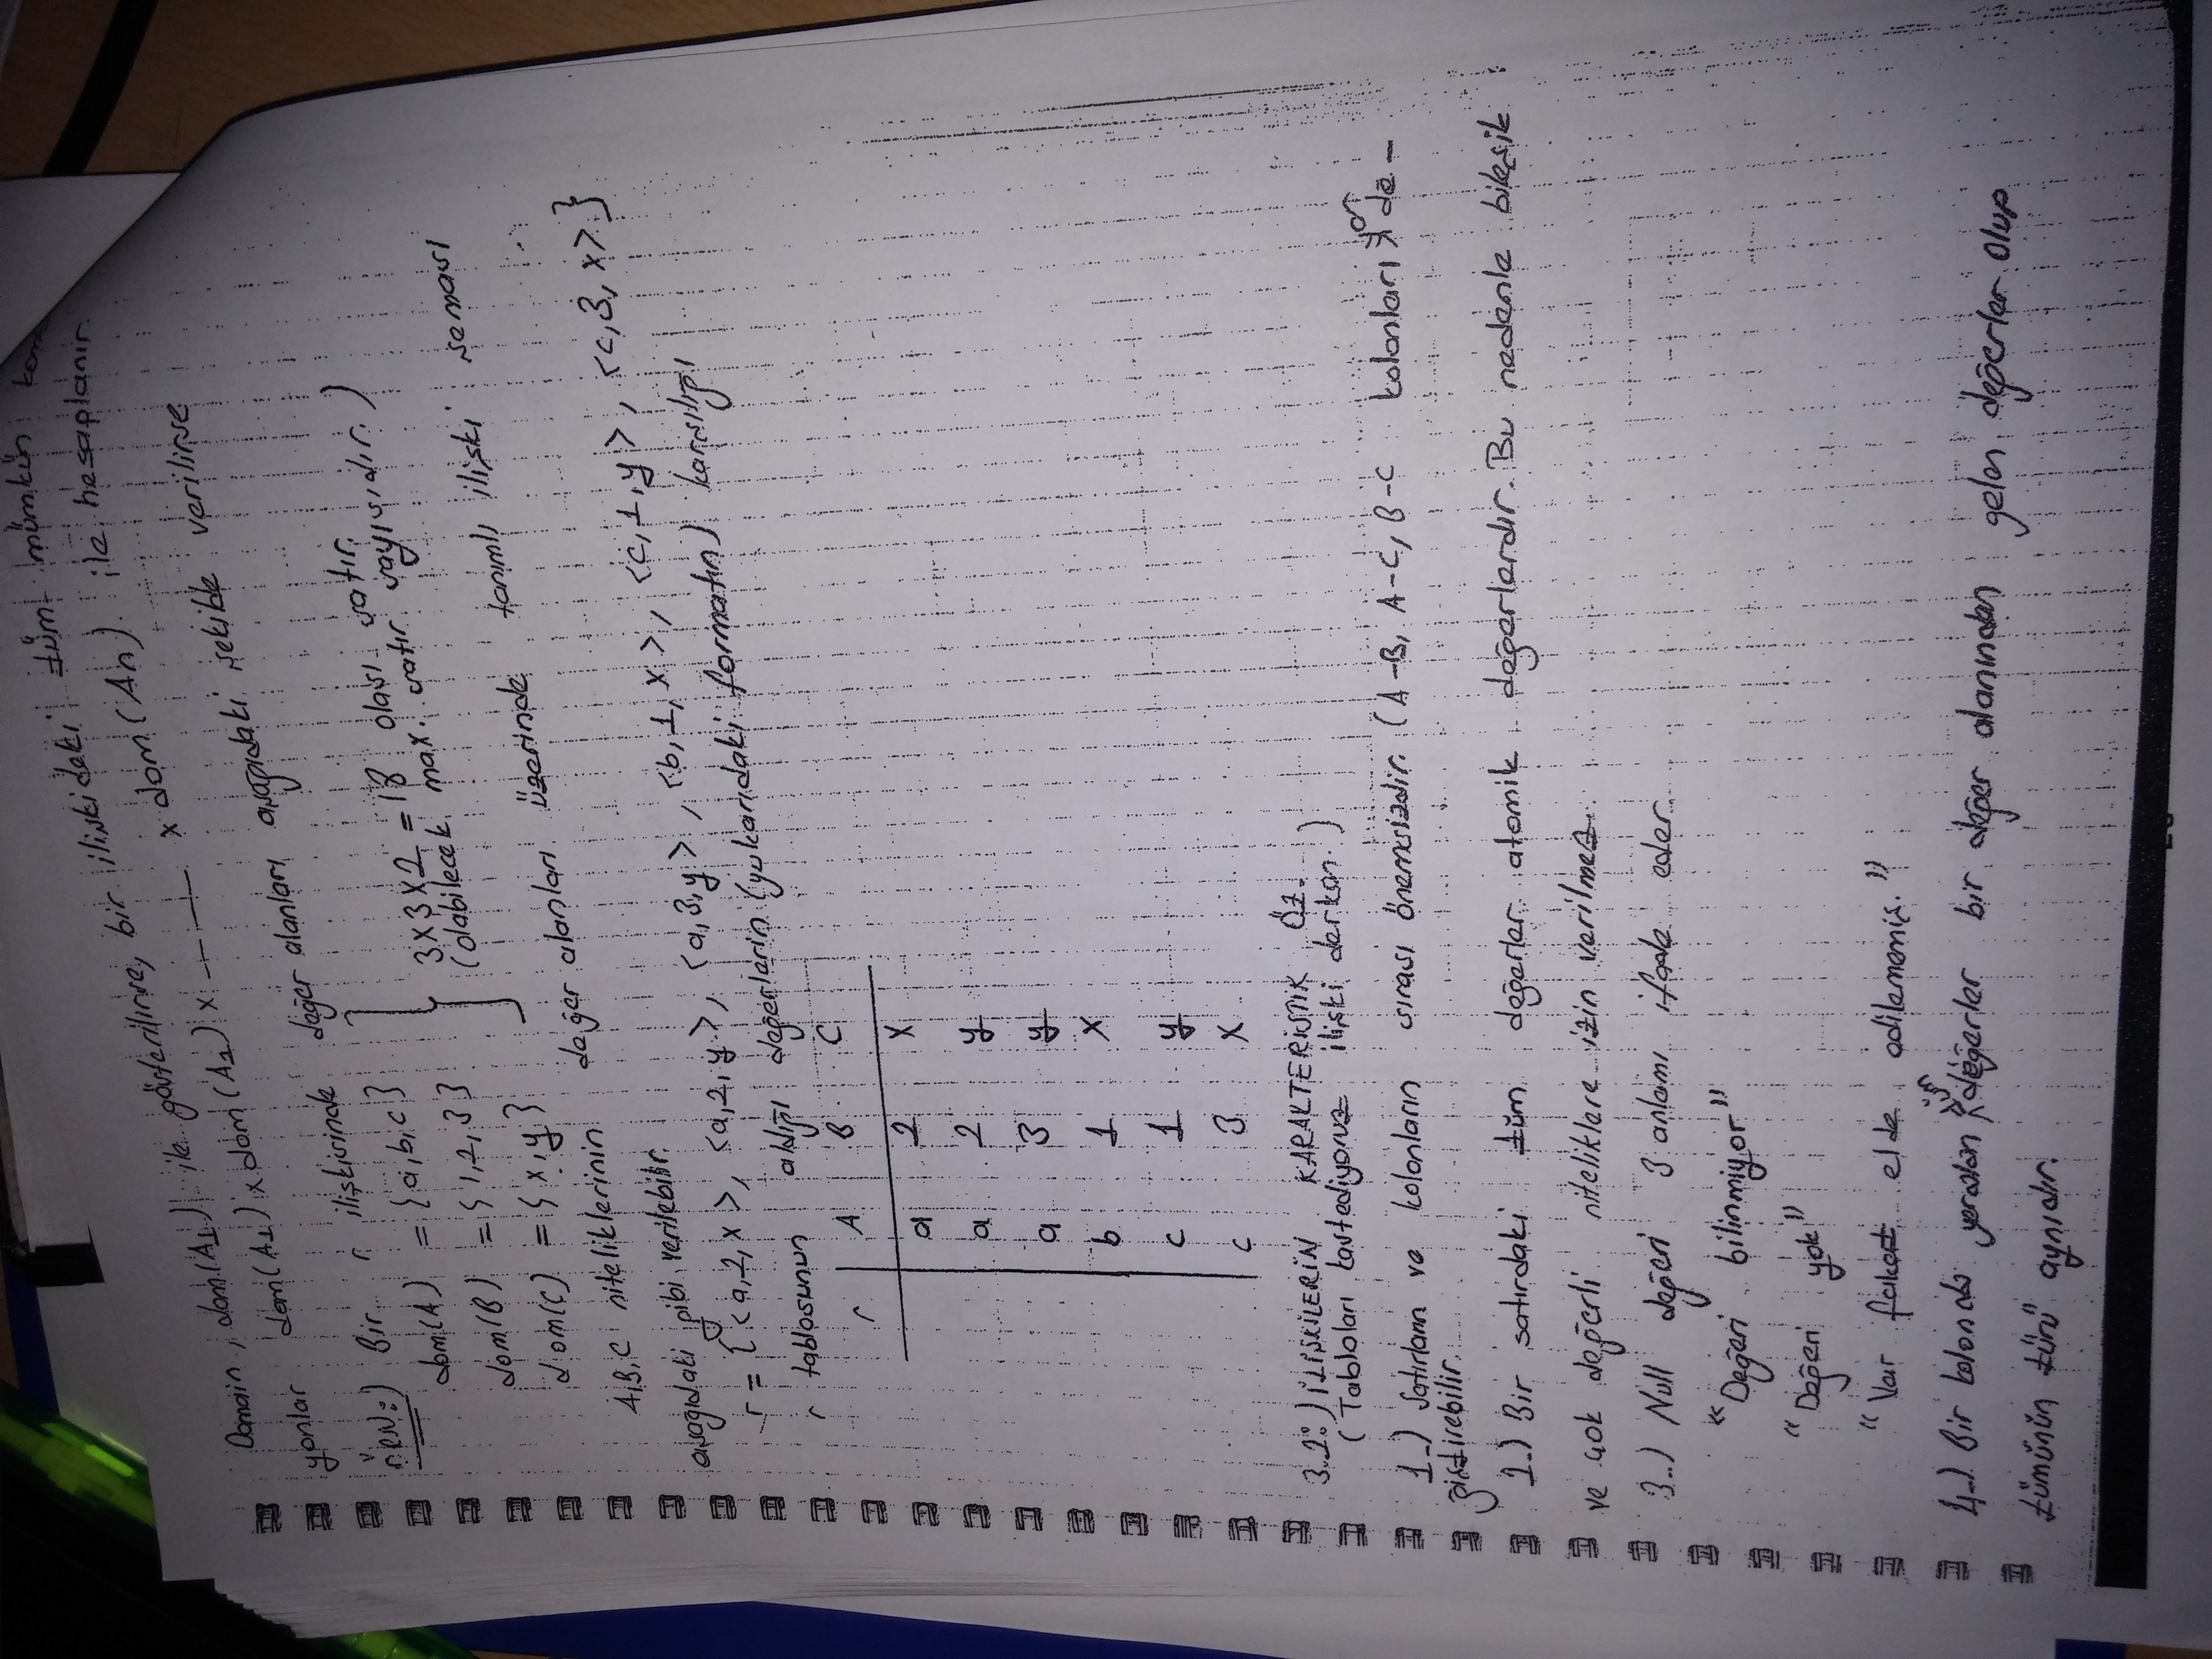 Domain, dom(A1) ile gösterilirse, bir ilişkideki tüm mümkün
yonlar dom(A1) x dom(A2) x — — — x dom(An) ile hesaplanır.
ÖRN:) Bir r ilişkisinde değer alanları aşağıdaki şekilde verilirse
dom(A) = {a,b,c}
dom(B) = {1,2,3}
dom(C) = {x,y}
3x3x2 = 18 olası satır.
(olabilecek max. satır sayısıdır.)
A,B,C niteliklerinin değer alanları üzerinde tanımlı ilişki şeması
aşağıdaki gibi verilebilir.
r = {<a,2,x>, <a,2,y>, <a,3,y>, <b,1,x>, <c,1,y>, <c,3,x>}
r tablosunun aldığı değerlerin (yukarıdaki formatın) karşılığı
r A B C
a 2 x
a 2 y
a 3 y
b 1 x
c 1 y
c 3 x
3.2:) İLİŞKİLERİN KARAKTERİSTİK ÖZ.
(Tabloları kastediyoruz ilişki derken.)
1-) Satırların ve kolonların sırası önemsizdir. (A-B, A-C, B-C kolonları yer de-
ğiştirebilir.
2.) Bir satırdaki tüm değerler atomik değerlerdir. Bu nedenle bileşik
ve çok değerli niteliklere izin verilmez.
3..) Null değeri 3 anlamı ifade eder.
"Değeri bilinmiyor"
"Değeri yok"
"Var fakat elde edilememiş."
4-) Bir kolonda yeralan tüm değerler bir değer alanından gelen değerler olup
tümünün türü aynıdır.